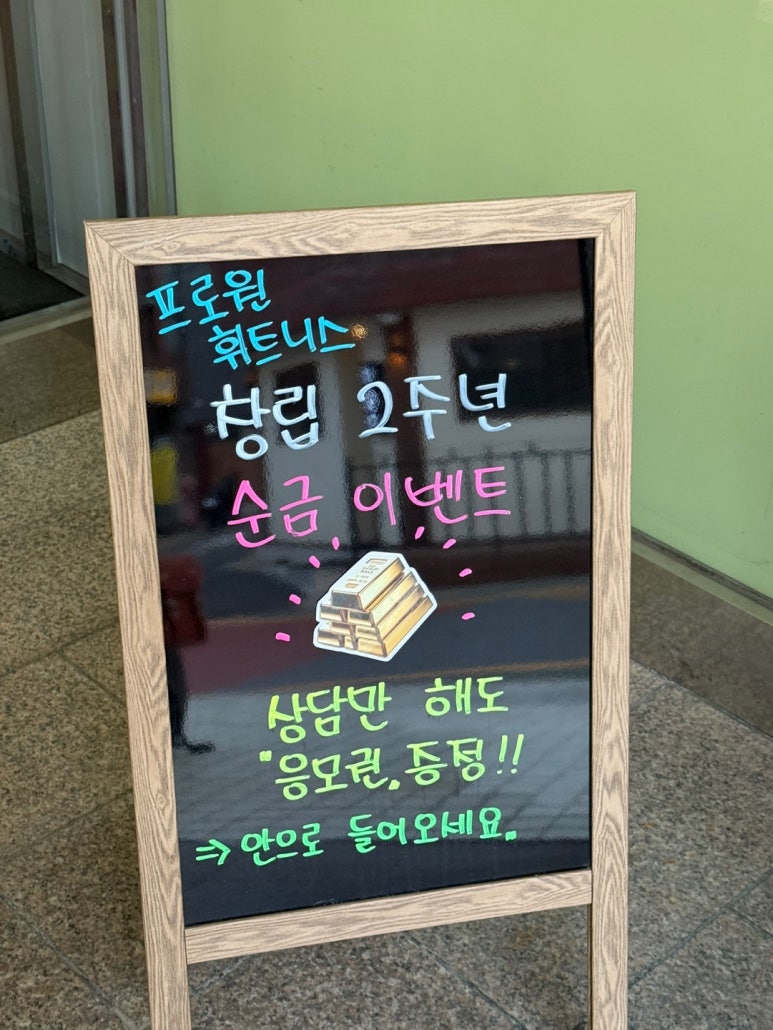 프로원
휘트니스
창립 2주년
순금 이벤트
상담만 해도
"응모권" 증정!!
⇒ 안으로 들어오세요.